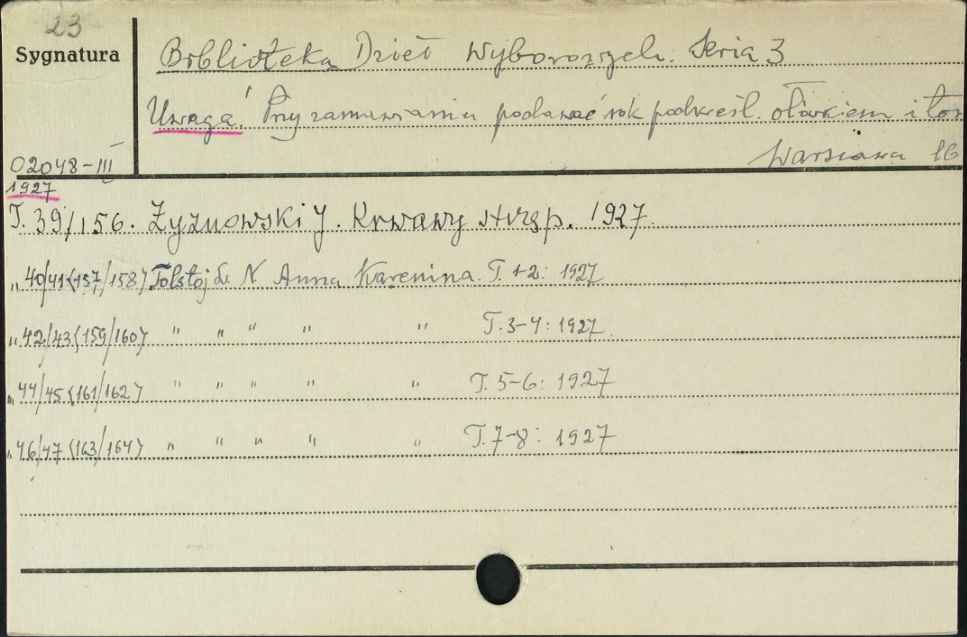 23
Sygnatura
Biblioteka Dzieł Wyborowych. Seria 3
Uwaga! Przy zamawianiu podawać rok podkreśl. ołówkiem i tom
Warszawa 16
02048-III
1927
T. 39/156. Żyznowski J. Krwawy strzęp. 1927
„ 40/41 (157/158) Tołstoj L. N. Anna Karenina. T. 1-2: 1927
„ 42/43 (159/160) " " " " " T. 3-4: 1927
„ 44/45 (161/162) " " " " " T. 5-6: 1927
„ 46/47 (163/164) " " " " " T. 7-8: 1927